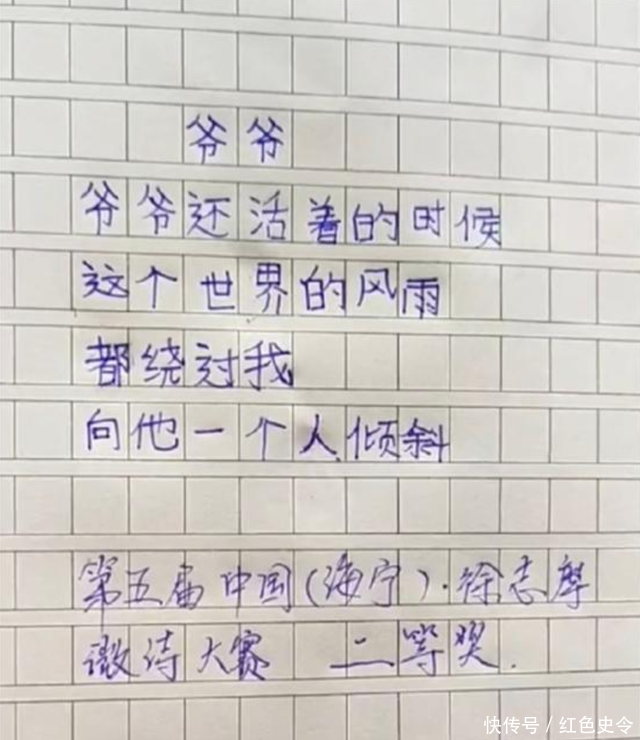 爷爷
爷爷还活着的时候
这个世界的风雨
都绕过我
向他一个人倾斜
第五届中国(海宁)·徐志摩
微诗大赛 二等奖.
快传号/红色史令